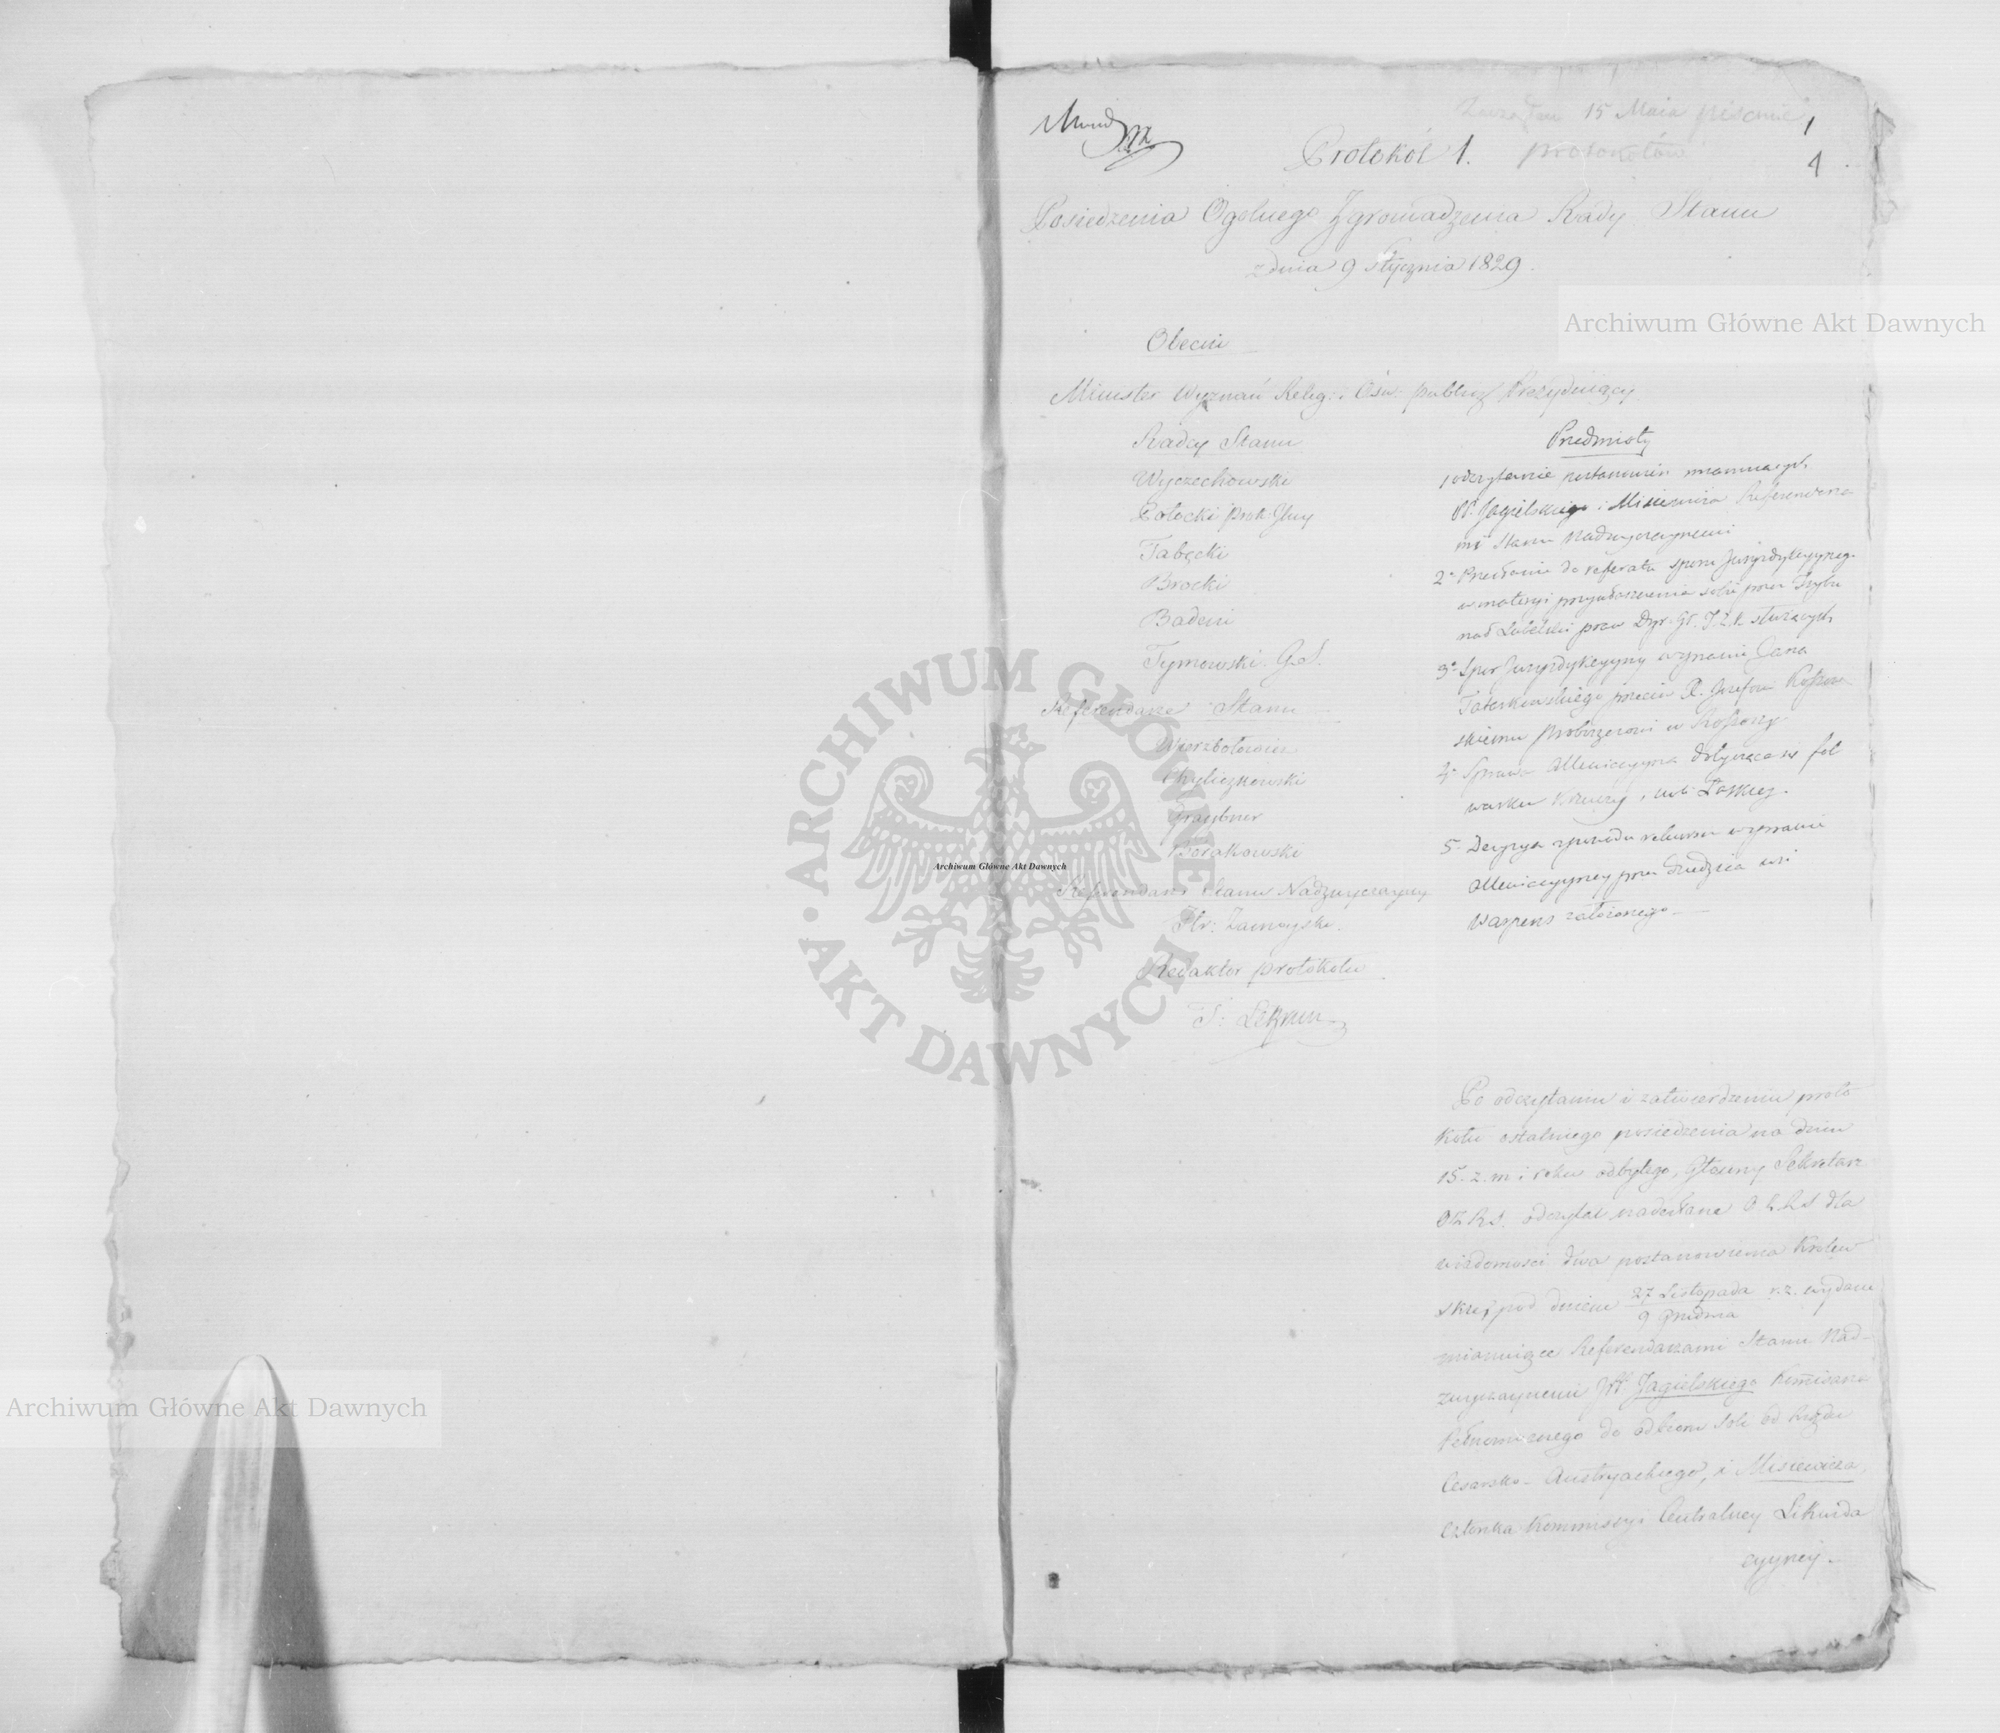 15 Maia
1
Protokół 1. protokołów
4
Posiedzenia Ogolnego Zgromadzenia Rady Stanu
z dnia 9 Stycznia 1829.
Archiwum Główne Akt Dawnych
Obecni
Minister Wyznań Relig: i Ośw: publicz Prezyduiący
Radcy Stanu
Wyczechowski
Potocki Prok: Jlny
Tabęcki
Brocki
Badeni
Tymowski. G.S.
Referendarze Stanu
Wierzbołowicz
Chyliczkowski
Graybner
Borakowski
Referendarz Stanu Nadzwyczayny
Hr: Zamoyski.
Redaktor protokołu
Przedmioty
1 odczytanie postanowień
PP. Jagielskiego i Misiewicza Referendarza
mi Stanu Nadzwyczaynemi
2° Przesłanie do referatu sporu Juryzdykcyyneg.
w materyi przywłaszczenia sobie przez Trybu
nał Lubelski praw Dyr. Gł. T.Z.K. służących
3° Spór Juryzdykcyyny w sprawie Jana
przeciw X. Józefowi
skiemu Proboszczowi w
4° Sprawa Allewiacyyna dotycząca się fol
warku
5. Decyzya z powodu rekursu w sprawie
Allewiacyyney przez dziedzica wsi
założonego
Archiwum Główne Akt Dawnych
ARCHIWUM GŁÓWNE AKT DAWNYCH
Po odczytaniu i zatwierdzeniu proto
kołu ostatniego posiedzenia na dniu
15. z. m i roku odbytego, Główny Sekretarz
odczytał nadesłane dla
wiadomości dwa postanowienia Królew
skie, pod dniem 27 Listopada r. z. wydane
9 Grudnia
mianuiące Referendarzami Stanu Nad-
zwyczaynemi JPP. Jagielskiego Kommissarza
Pełnomocnego do odbioru Soli od Rządu
Cesarsko-Austryackiego, i Misiewicza,
Członka Kommissyi Centralney Likwida
cyyney.
Archiwum Główne Akt Dawnych